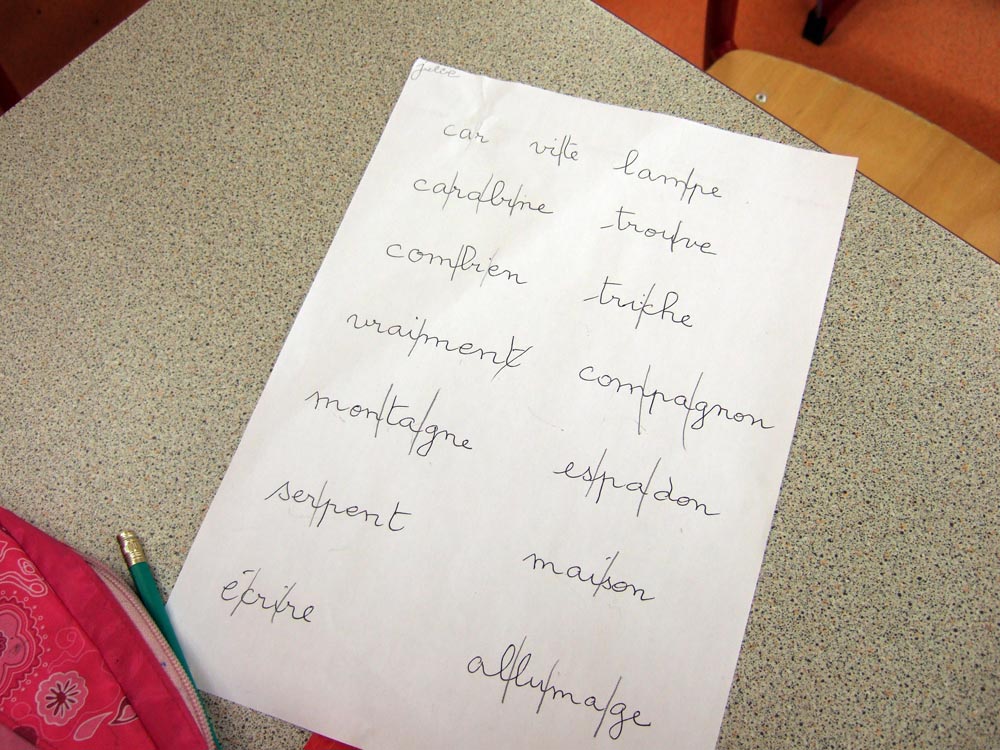 car vi/te lam/pe
ca/ra/bi/ne trou/ve
com/bi/en tri/che
vrai/ment com/pa/gnon
mon/ta/gne es/pa/don
ser/pent mai/son
é/cri/re al/lu/ma/ge